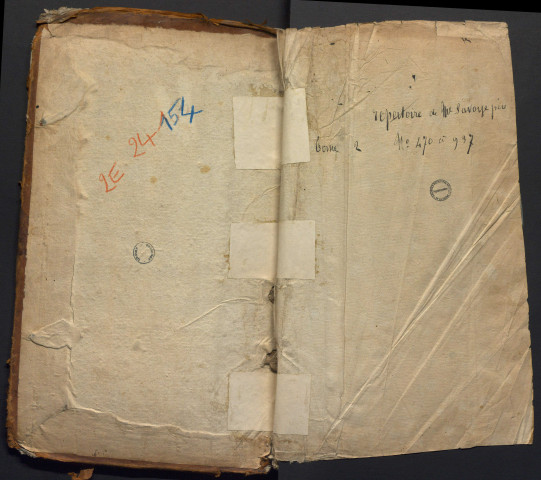 2E 24 154
repertoire de Me Savoye père
tome 2 No 470 a 937